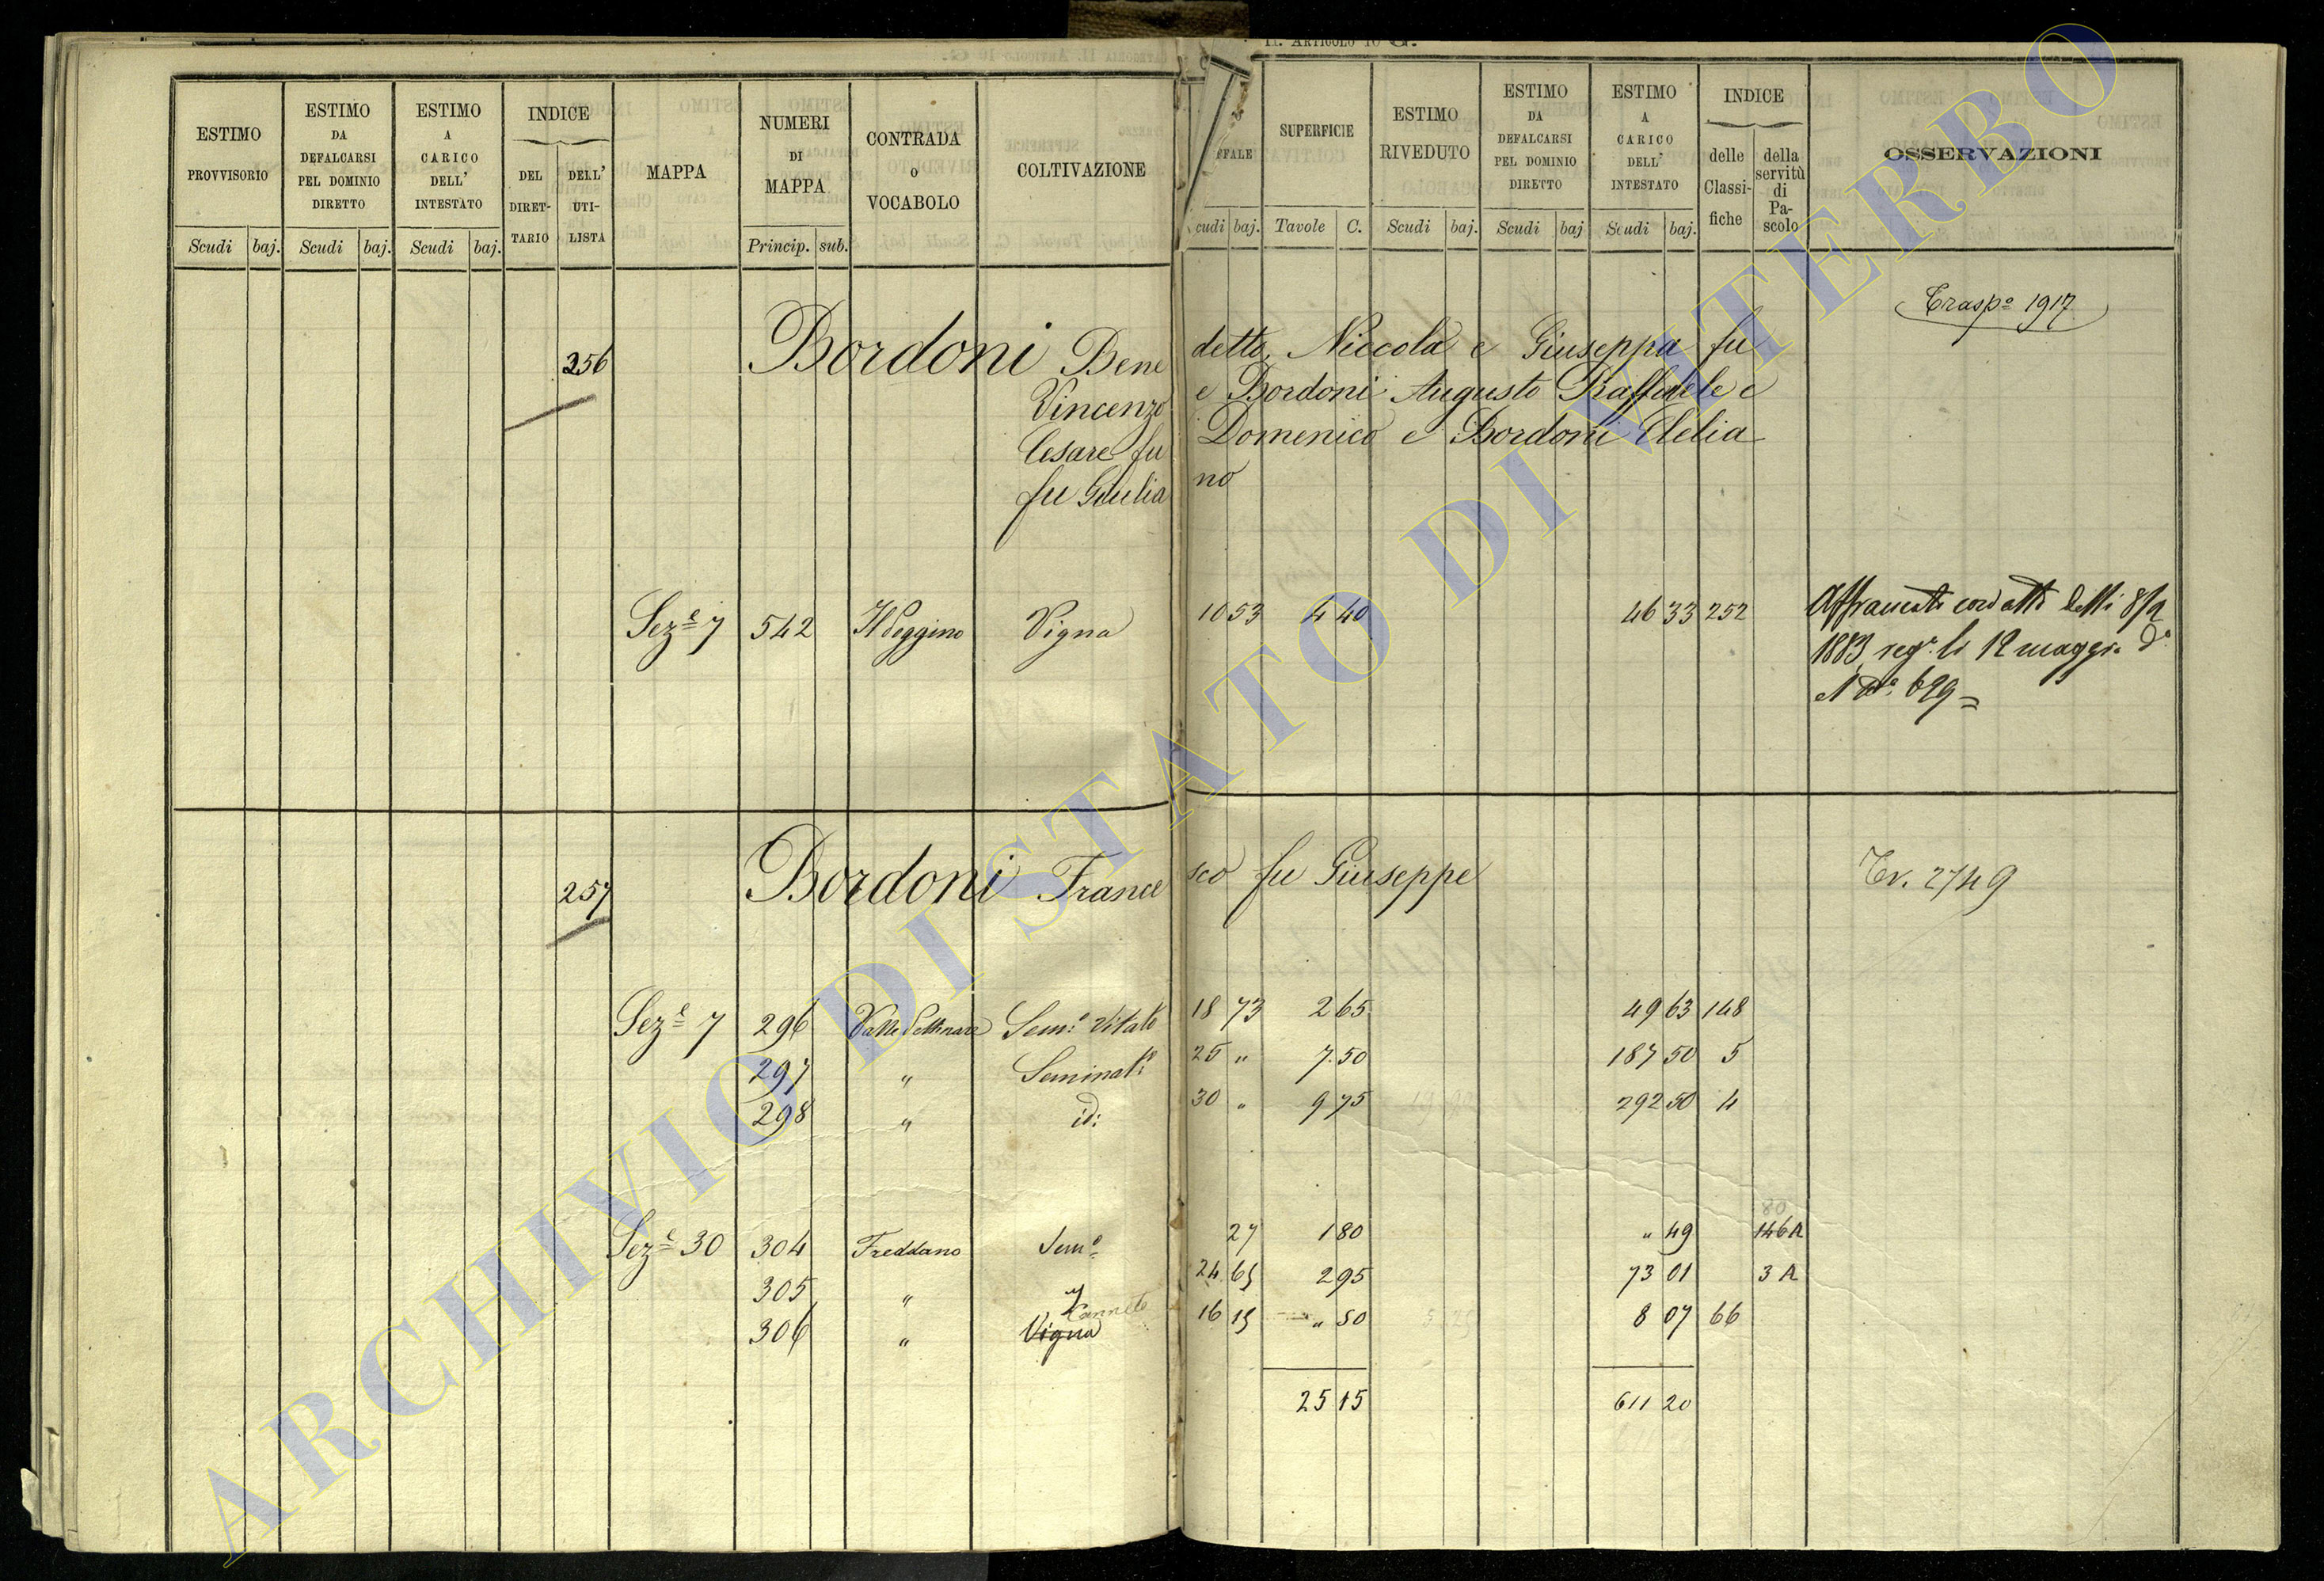 II. ARTICOLO 10 G.
ESTIMO PROVVISORIO
ESTIMO DA DEFALCARSI PEL DOMINIO DIRETTO
ESTIMO A CARICO DELL' INTESTATO
INDICE
DEL DIRETTARIO
DELL' UTILISTA
MAPPA
NUMERI DI MAPPA
CONTRADA o VOCABOLO
COLTIVAZIONE
FFALE
SUPERFICIE
ESTIMO RIVEDUTO
ESTIMO DA DEFALCARSI PEL DOMINIO DIRETTO
ESTIMO A CARICO DELL' INTESTATO
INDICE
delle Classifiche
della servitù di Pascolo
OSSERVAZIONI
Scudi baj. Scudi baj. Scudi baj. Princip. sub. cudi baj. Tavole C. Scudi baj. Scudi baj Scudi baj.
Trasp.o 1917
256 Bordoni Benedetto, Niccola e Giuseppa fu
Vincenzo e Bordoni Augusto Raffaele e
Cesare fu Domenico e Bordoni Clelia
fu Giuliano
Sez.e 7 542 Il Poggino Vigna 10 53 4 40 46 33 252
1883 reg.o li 12 maggio d.o
257 Bordoni Francesco fu Giuseppe Tr. 2749
Sez.e 7 296 Valle Pettinara Sem.o Vitato 18 73 2 65 49 63 148
297 " Seminat.o 25 " 7 50 187 50 5
298 " id: 30 " 9 75 292 50 4
80
Sez.e 30 304 Freddano Sem.o 27 1 80 " 49 146A
305 " 24 65 2 95 73 01 3 A
Canneto
306 " Vigna 16 15 " 50 8 07 66
25 15 611 20
ARCHIVIO DI STATO DI VITERBO